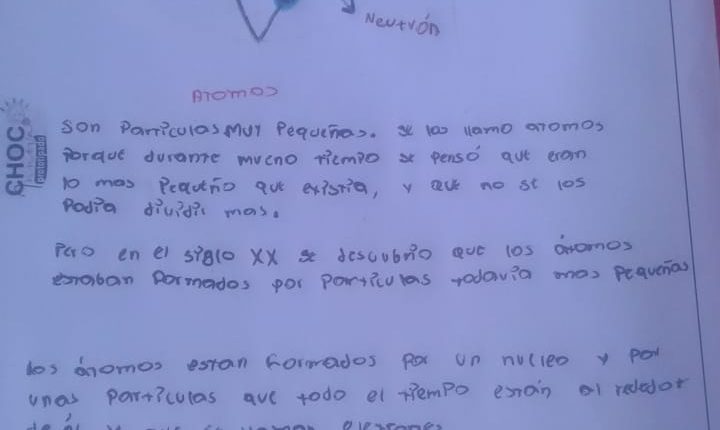 Neutrón
ATOMOS
CHOC
Son Particulas MUY Pequeñas. se las llamo atomos
Porque durante mucho tiempo se pensó que eran
lo mas Pequeño que existia, y que no se los
Podia dividir mas.
Pero en el siglo XX se descubrio que los átomos
estaban formados por particulas todavia mas Pequeñas
los átomos estan formados por un nucleo y por
unas particulas que todo el tiempo están al rededor
de él y que se llaman electrones